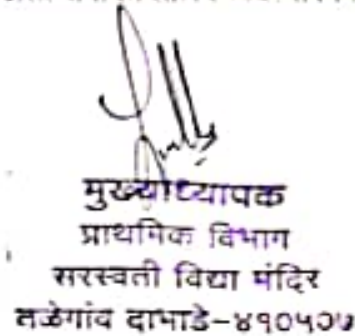 मुख्याध्यापक
प्राथमिक विभाग
सरस्वती विद्या मंदिर
तळेगांव दाभाडे-४१०५०७